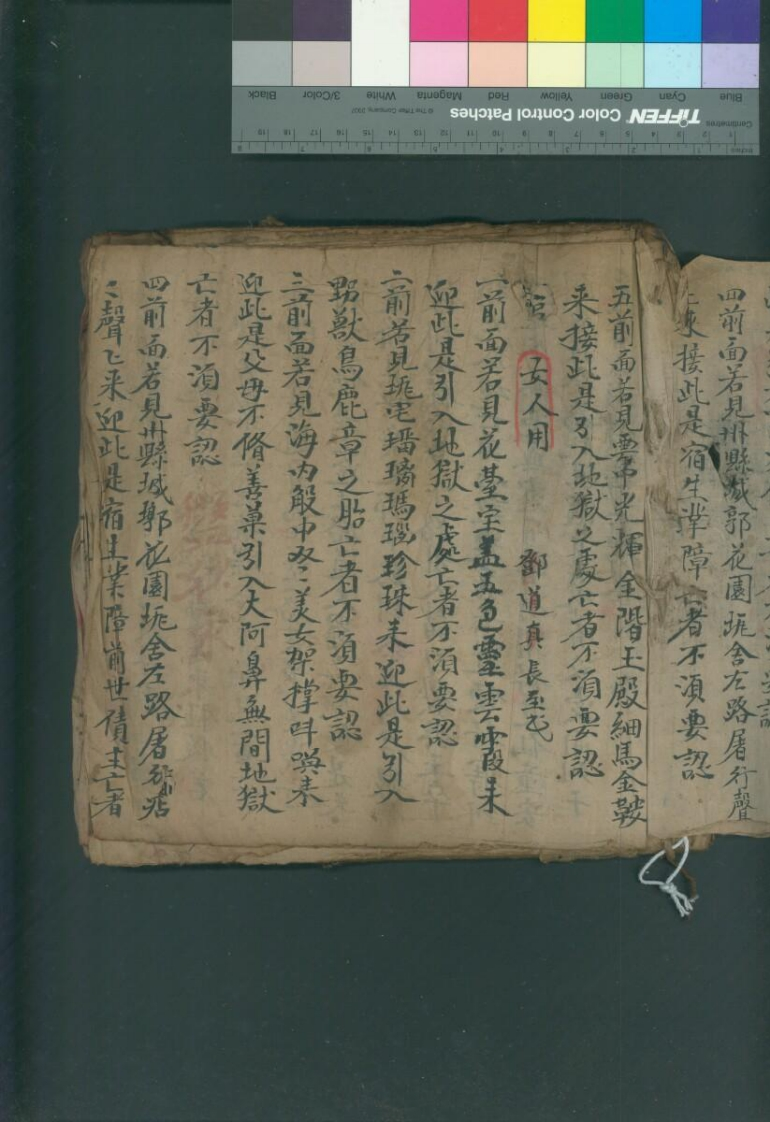 四前面若見州縣城郭花園坭舍左路屠行聲
来接此是宿生業障亡者不湏要認
五前面若見雲中光輝金階王殿細馬金鞍
来接此是引入地獄之處亡者不湏要認
女人用 鄧道真長
一前面若見花臺宝盖五色靈雲霞来
迎此是引入地獄之處亡者不湏要認
二前若見坭宅璃瑪瑙珍珠来迎此是引入
野獸鳥鹿章之胎亡者不湏要認
三前面若見海内般中双〻美女架撑呌喚来
迎此是父母不脩善菓引入大阿鼻無間地獄
亡者不湏要認
四前面若見州縣城郭花園坭舍左路屠行
〻聲亡来迎此是宿生業障前世債主亡者
TIFFEN Color Control Patches
© The Tiffen Company, 2007
Blue Cyan Green Yellow Red Magenta White 3/Color Black
Centimetres
Inches